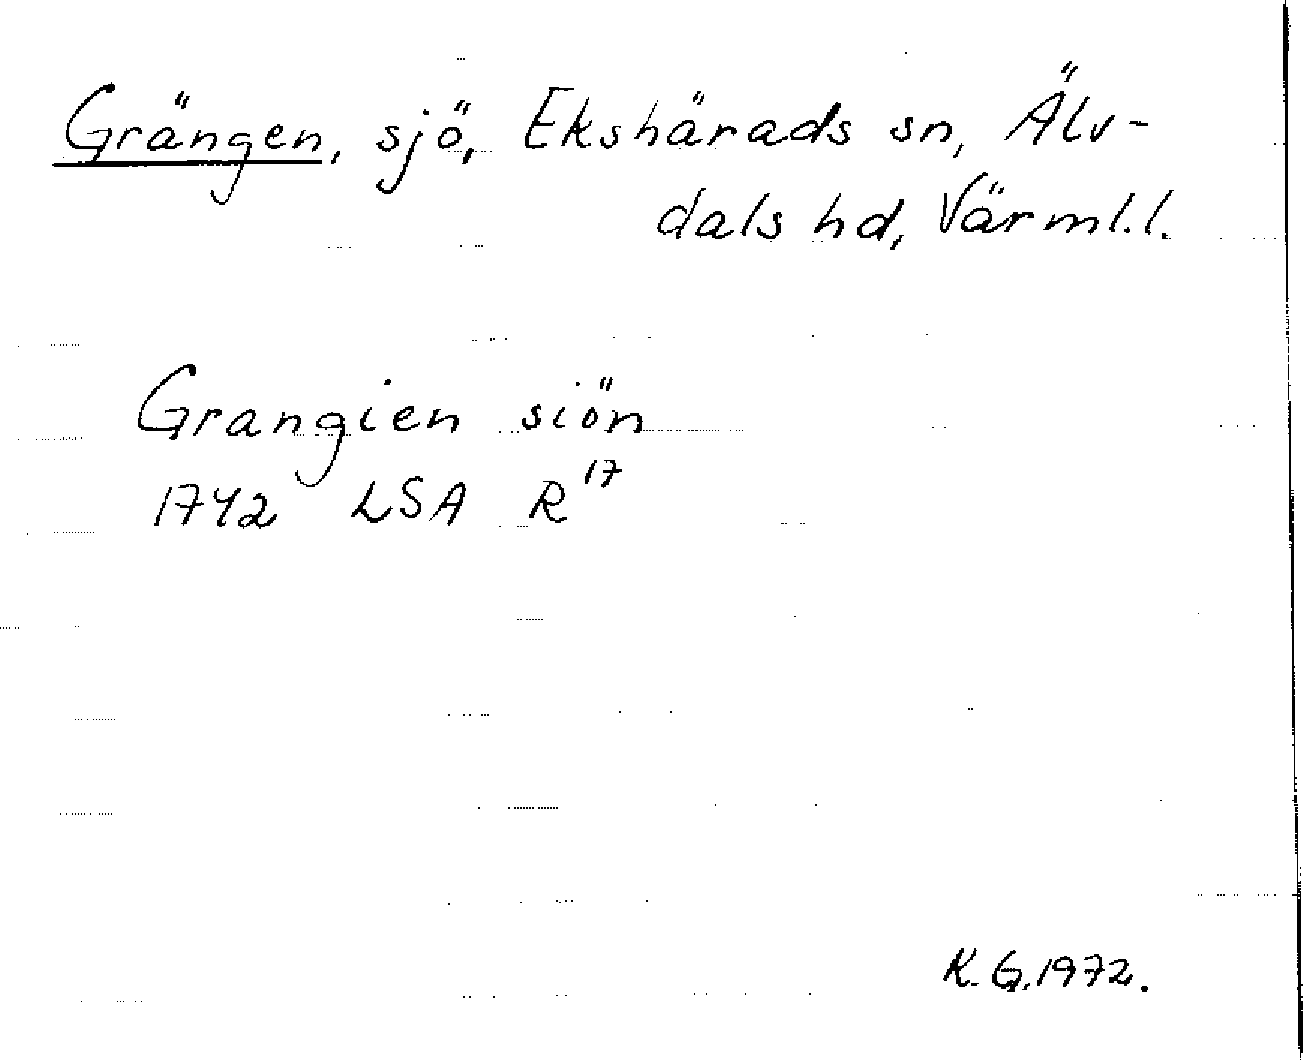 Grängen, sjö, Ekshärads sn, Älv-
dals hd, Värml.l.
Grangien siön
1742 LSA R 17
K.G.1972.